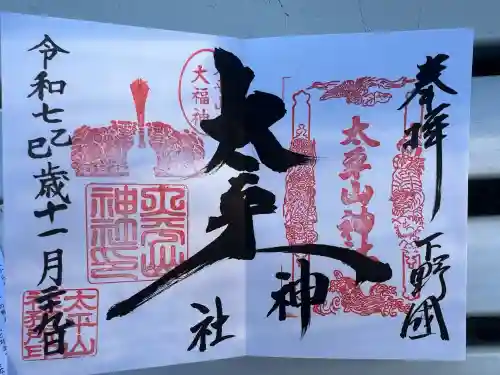 奉拝
下野國
太平山神社
太平
神
社
大福神
太平山神社印
太平山
令和七乙巳歳十一月二十九日